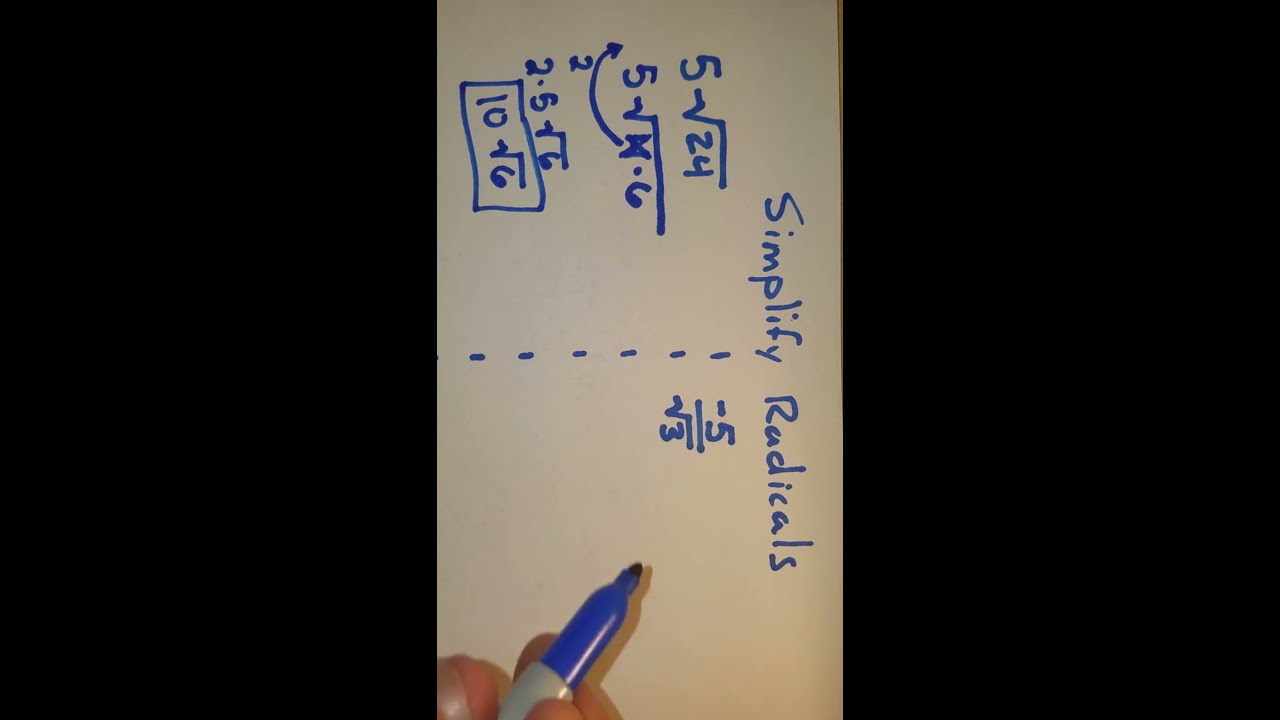 Simplify Radicals
5√24
5√4·6
2
2·5√6
10√6
-5
√3